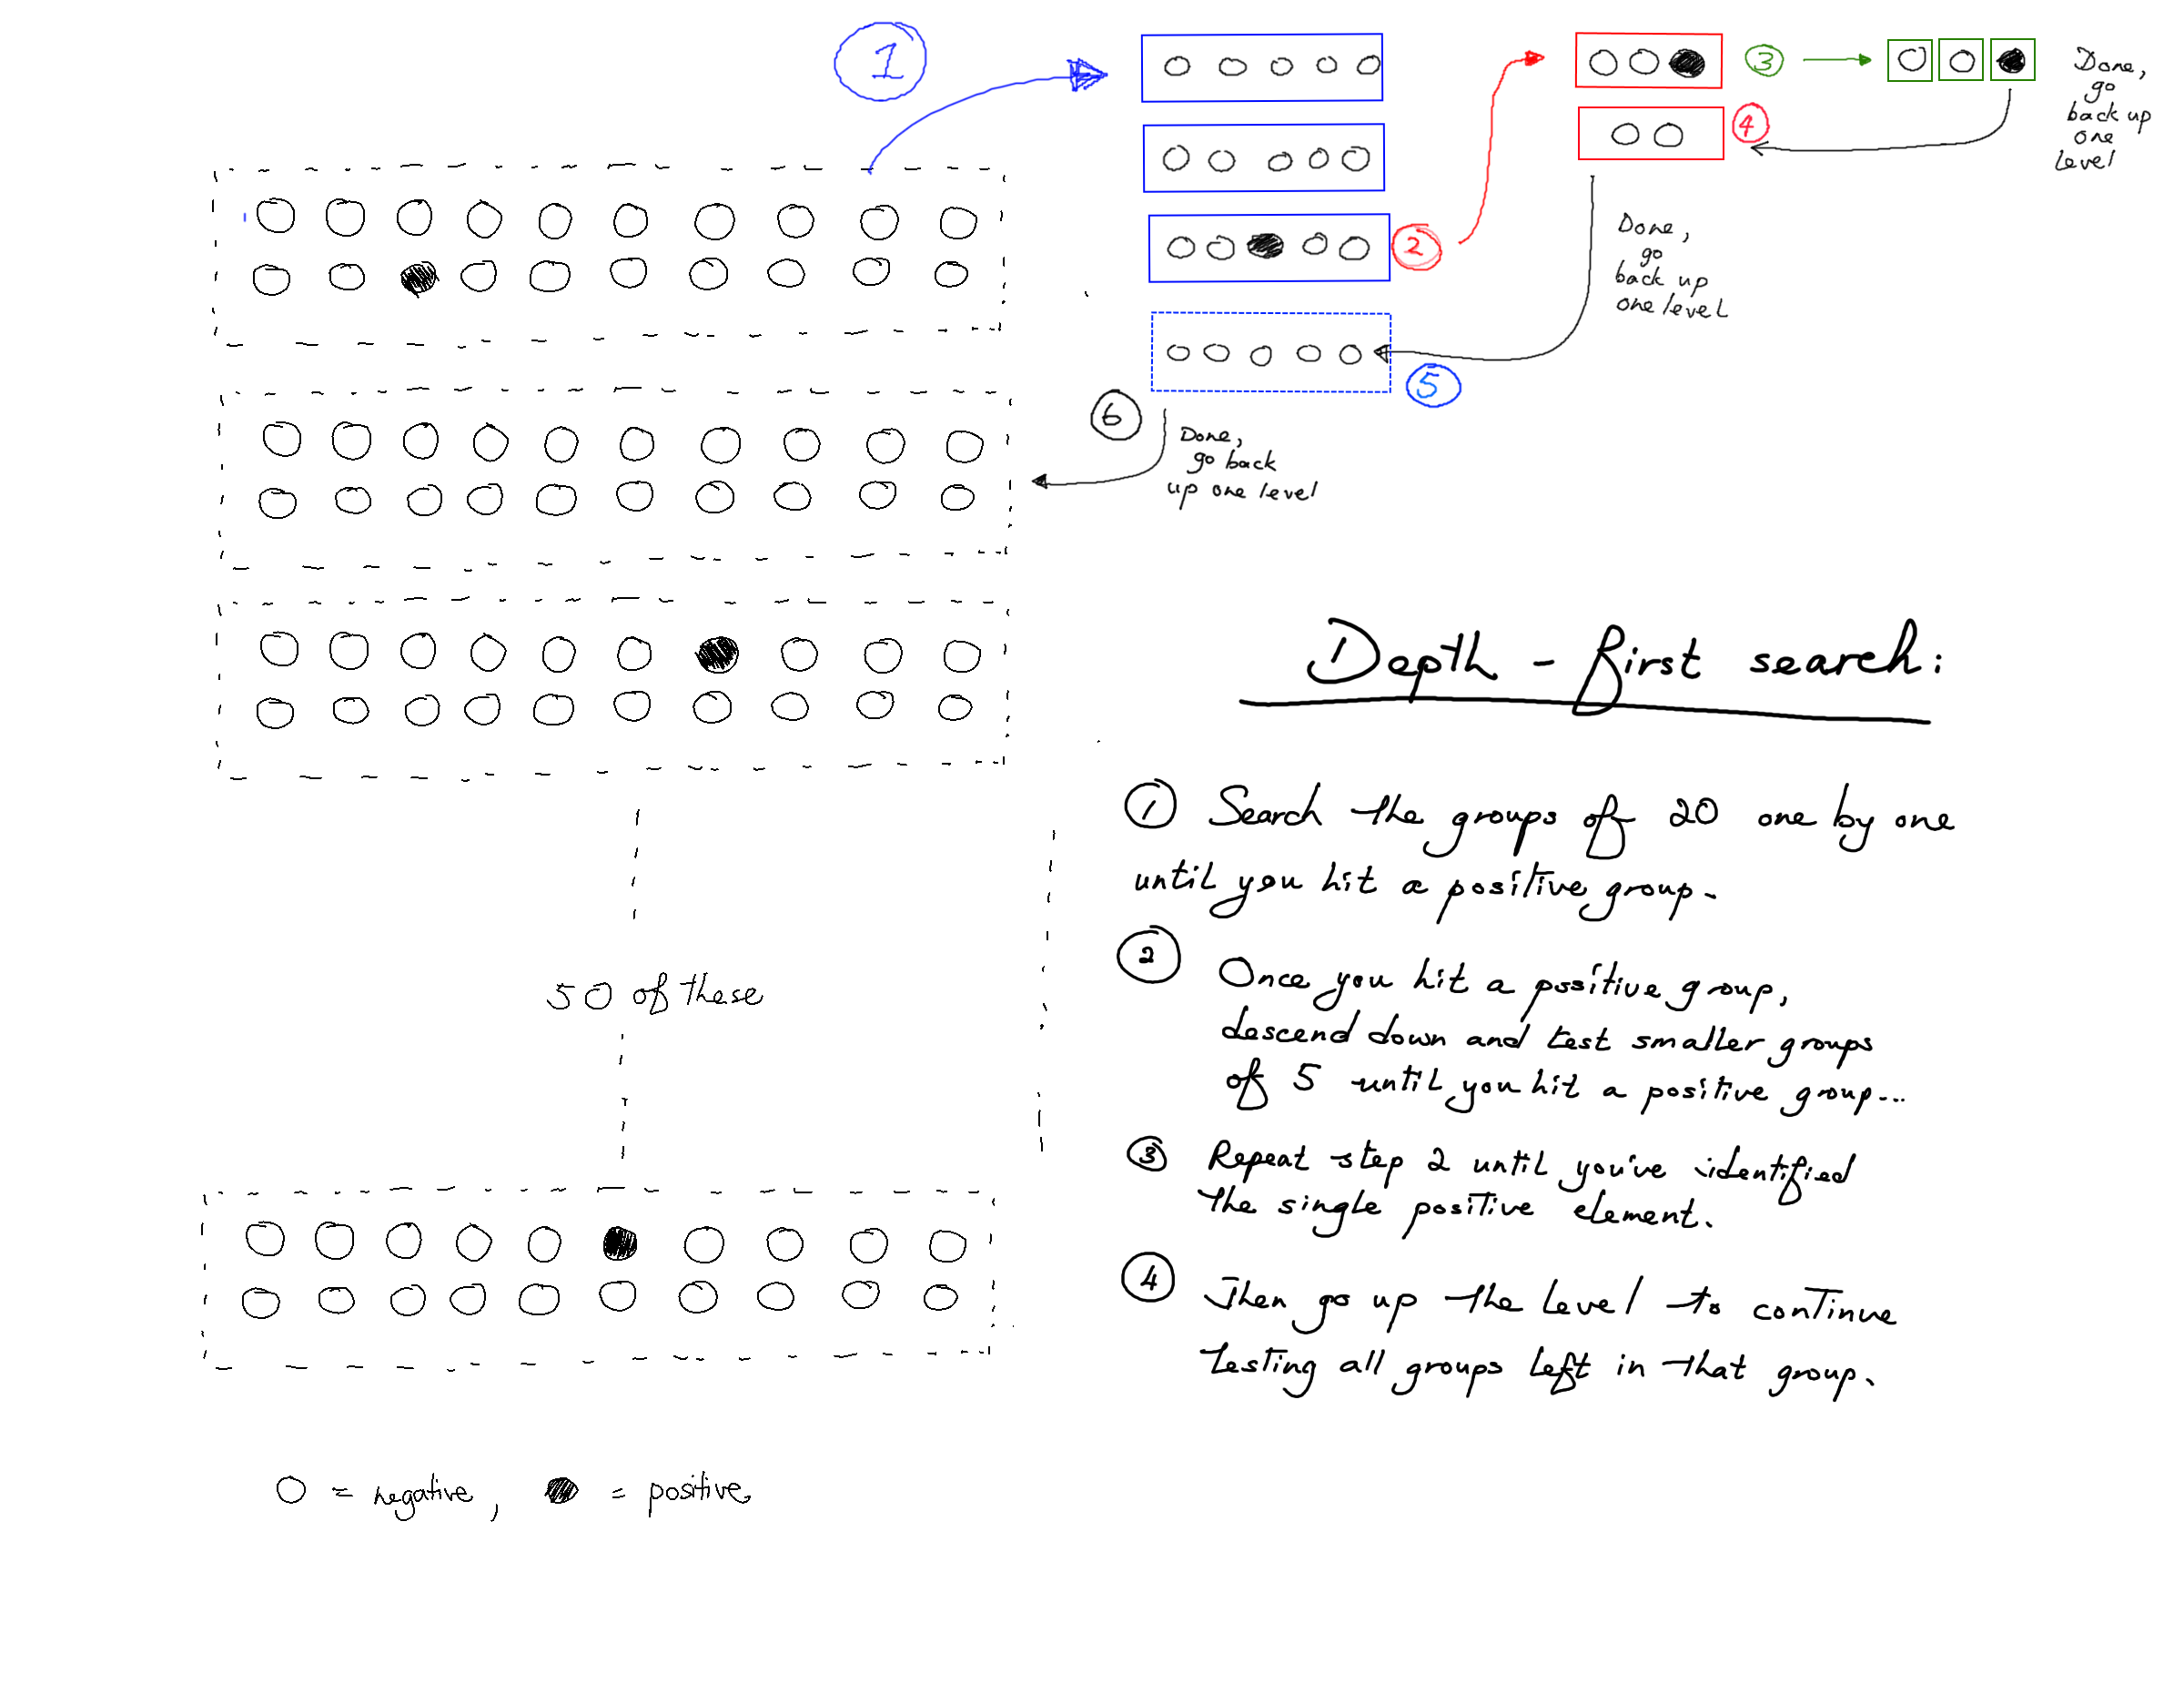 1
2
3
4
5
6
Done,
go
back up
one
level
Done,
go
back up
one level
Done,
go back
up one level
50 of these
○ = negative, ● = positive
Depth-first search:
① Search the groups of 20 one by one
until you hit a positive group.
② Once you hit a positive group,
descend down and test smaller groups
of 5 until you hit a positive group...
③ Repeat step 2 until you've identified
the single positive element.
④ Then go up the level to continue
testing all groups left in that group.